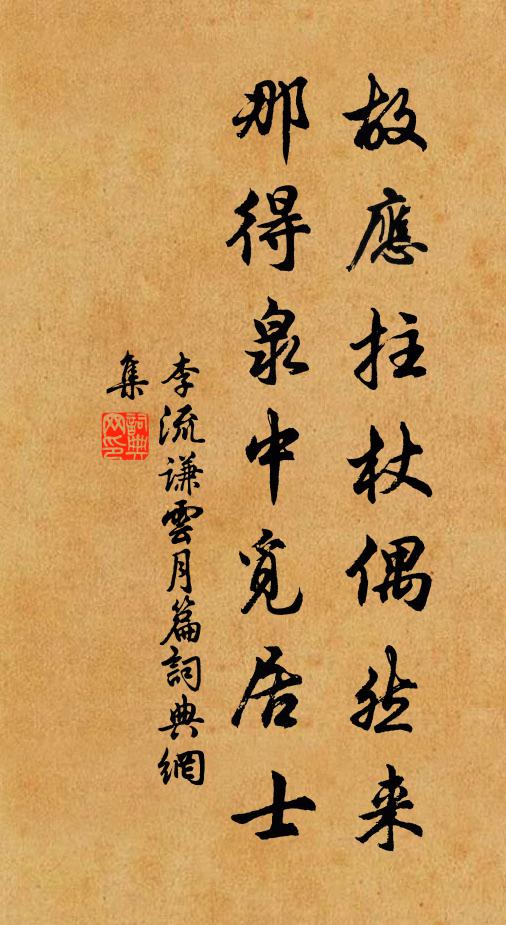 故應拄杖偶然来
那得泉中覓居士
李流谦雲月篇詞典網
集
詞典
网印